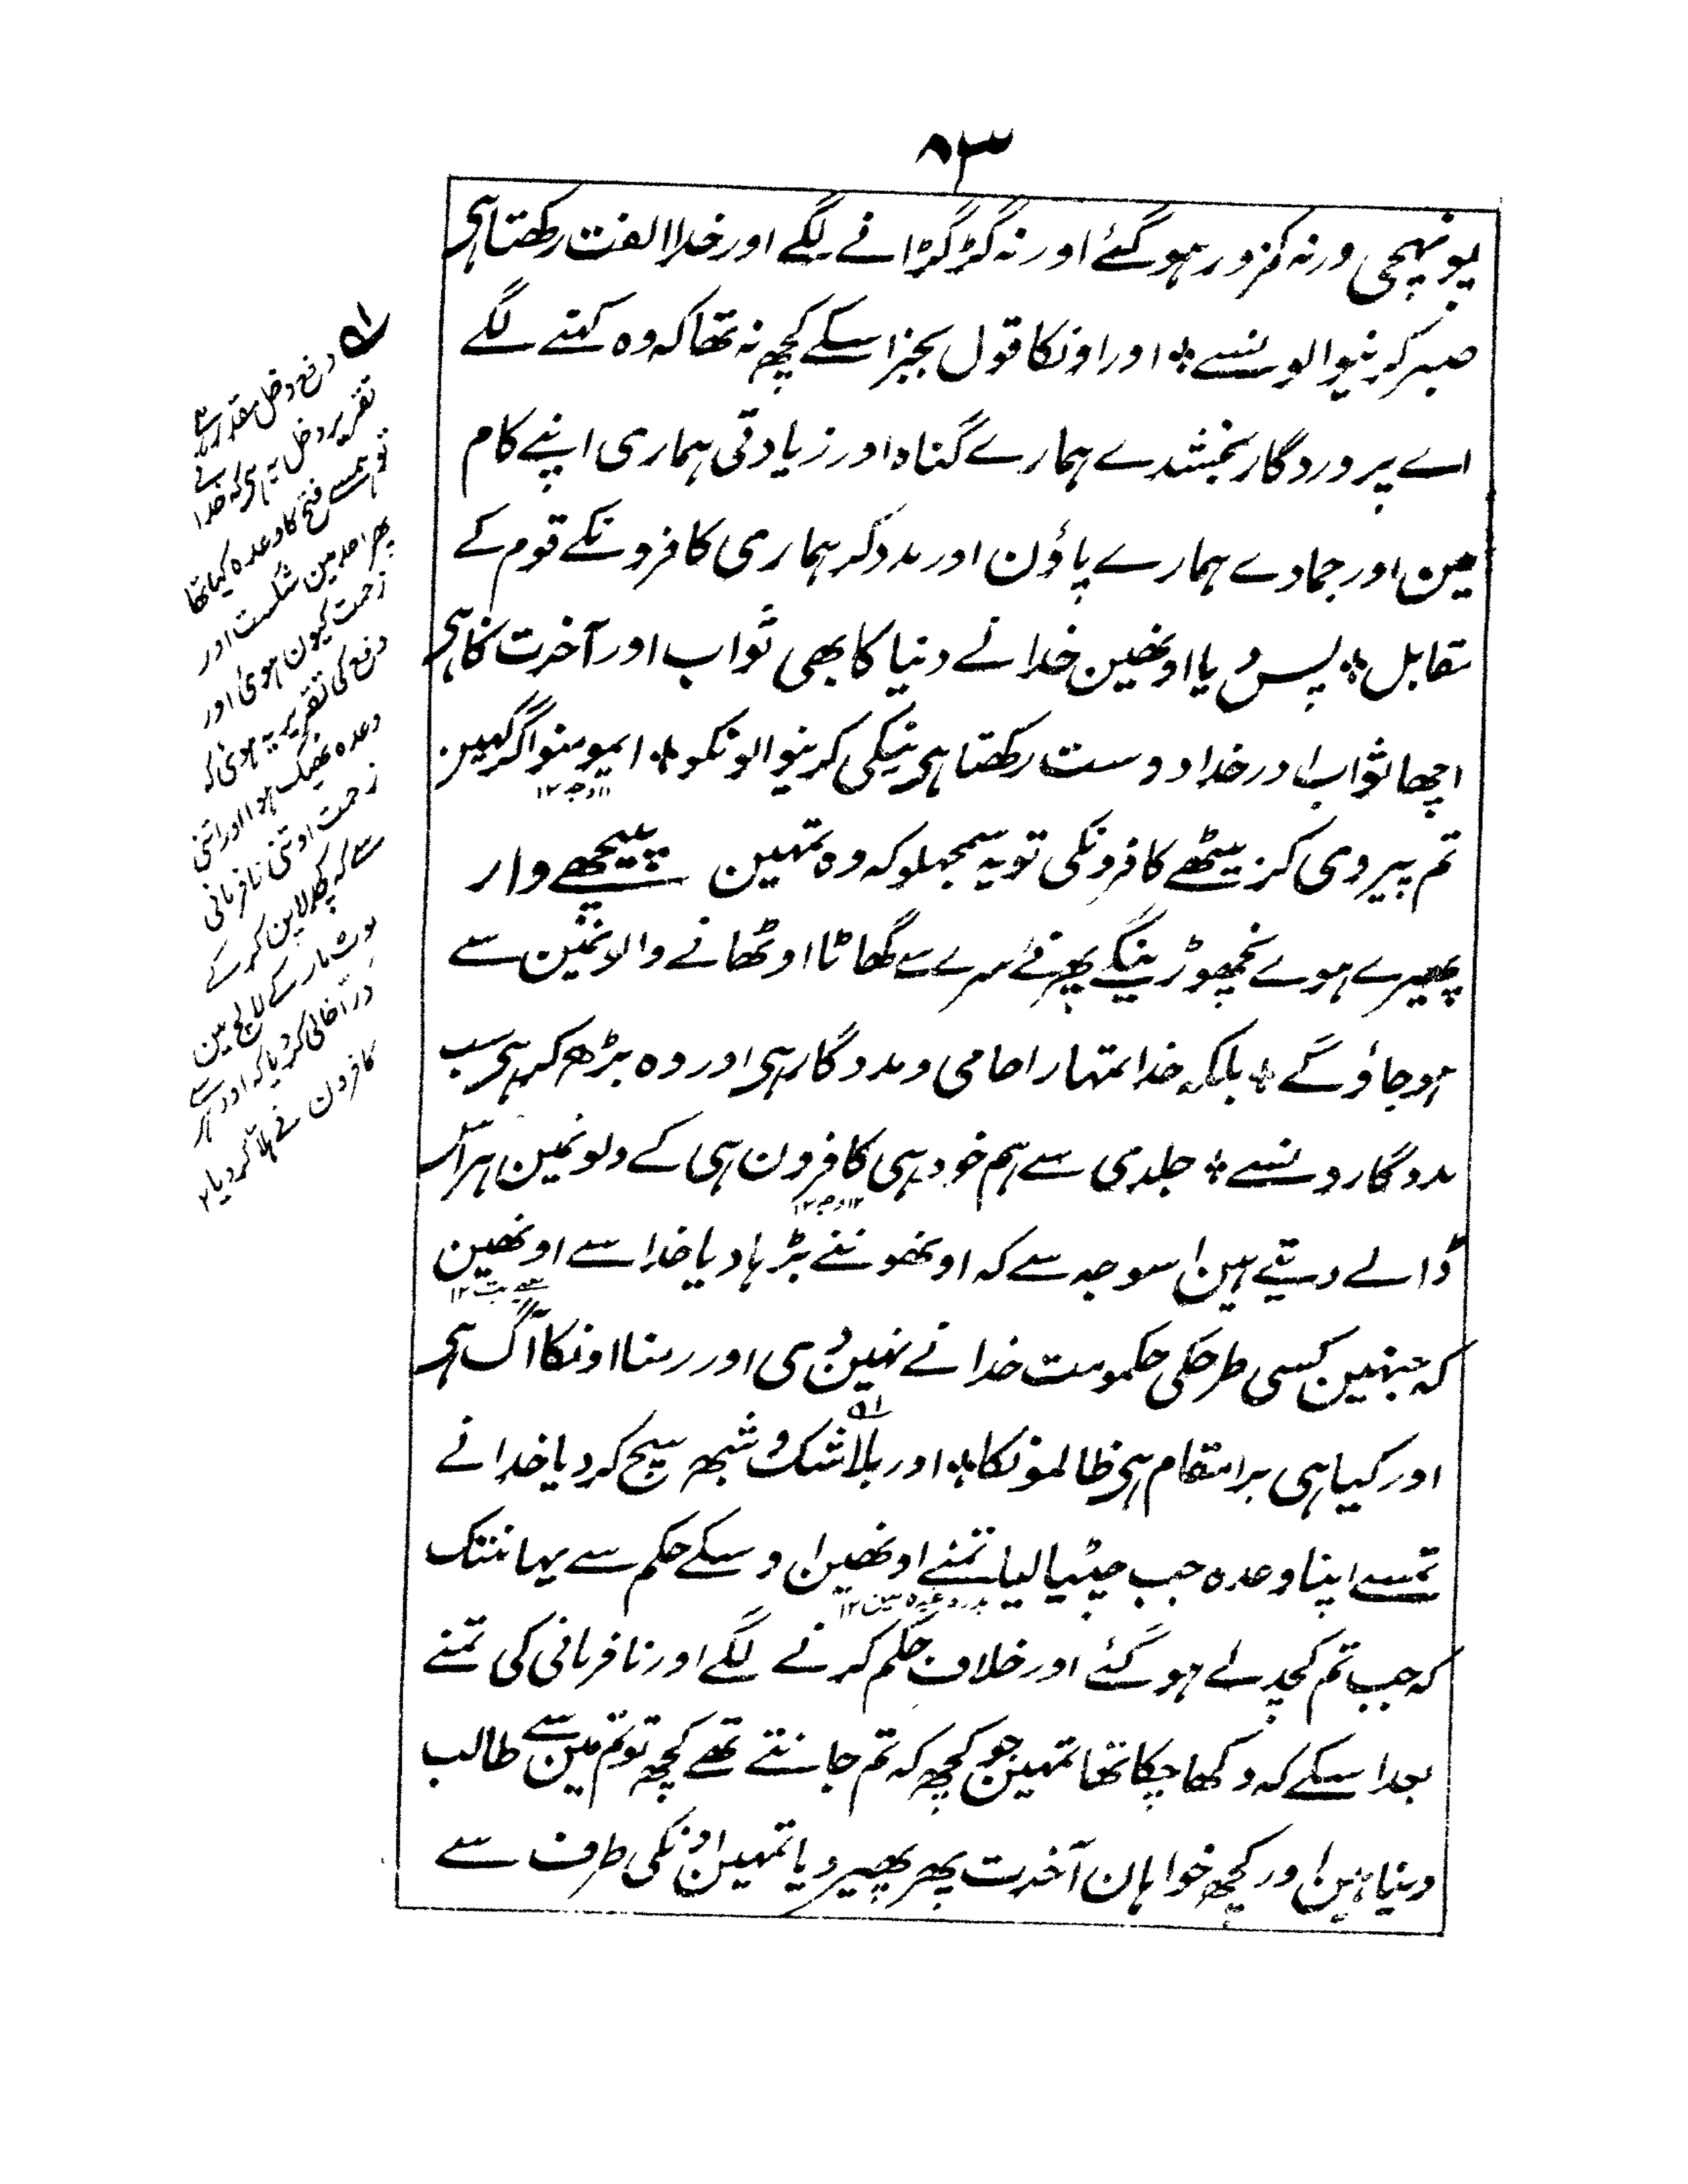 ۸۳
پونہچی ورنہ کمزور ہوگئے اور نہ گڑگڑانے لگے اور خدا الفت رکھتا ہی
صبر کرنیوالونسے * اور اونکا قول بجز اسکے کچھ نہ تھا کہ وہ کہنے لگے
اے پروردگار بخشدے ہمارے گناہ اور زیادتی ہماری اپنے کام
مین اور جمادے ہمارے پاؤن اور مدد کر ہماری کافرونکے قوم کے
مقابل * پس دیا اونھین خدانے دنیا کا بھی ثواب اور آخرت کا ہی
اچھا ثواب اور خدا دوست رکھتا ہی نیکی کرنیوالونکو * ایمومنو اگر کہین
تم پیروی کر بیٹھے کافرونکی تو یہ سمجھلو کہ وہ تمہین پیچھے وار
پھیرے ہوے نچھوڑینگے پھر نئے سرے سے گھاٹا اوٹھانے والونمین سے
ہوجاؤگے * بلکہ خدا تمہارا حامی و مددگار ہی اور وہ بڑھ کر ہی سب
مددگارونسے * جلدی سے ہم خود ہی کافرون ہی کے دلونمین ہراس
ڈالے دیتے ہین اسوجہ سے کہ اونھوننے بڑہادیا خدا سے اونھین
کہ جنہین کسی طرحکی حکومت خدانے نہین دی اور رہنا اونکا آگ ہی
اور کیا ہی برا مقام ہی ظالمونکا * اور بلا شک و شبھہ سچ کر دیا خدانے
تمسے اپنا وعدہ جب جٹپالیا تمنے اونھین اوسکے حکم سے یہانتک
کہ جب تم کچدلے ہوگئے اور خلاف حکم کرنے لگے اور نافرمانی کی تمنے
بعد اسکے کہ دکھا چکا تھا تمہین جو کچھ کہ تم جانتے تھے کچھ تو تم مین سے طالب
دنیا ہین اور کچھ خواہان آخرت پھر پھیر دیا تمہین اونکی طرف سے
دفع دخل مقدر ہے
تقریر دخل یہ ہی کہ خدا نے
تو ہمسے فتح کا وعدہ کیا تھا
پھر احد مین شکست اور
زحمت کیون ہوئی اور
دفع کی تقریر یہ ہوئی کہ
وعدہ ٹھیک ہوا اور اتنی
زحمت اوتنی نافرمانی
سے کہ کچدلاپن کرکے
لوٹ مار کے لالچ مین
درّا خالی کر دیا کہ اودہر سے
کافرون نے ہلا کر دیا ۱۲